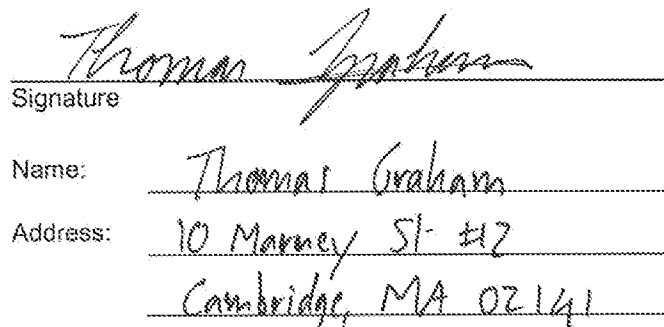 Thomas Graham
Signature
Name: Thomas Graham
Address: 10 Marney St #2
Cambridge, MA 02141